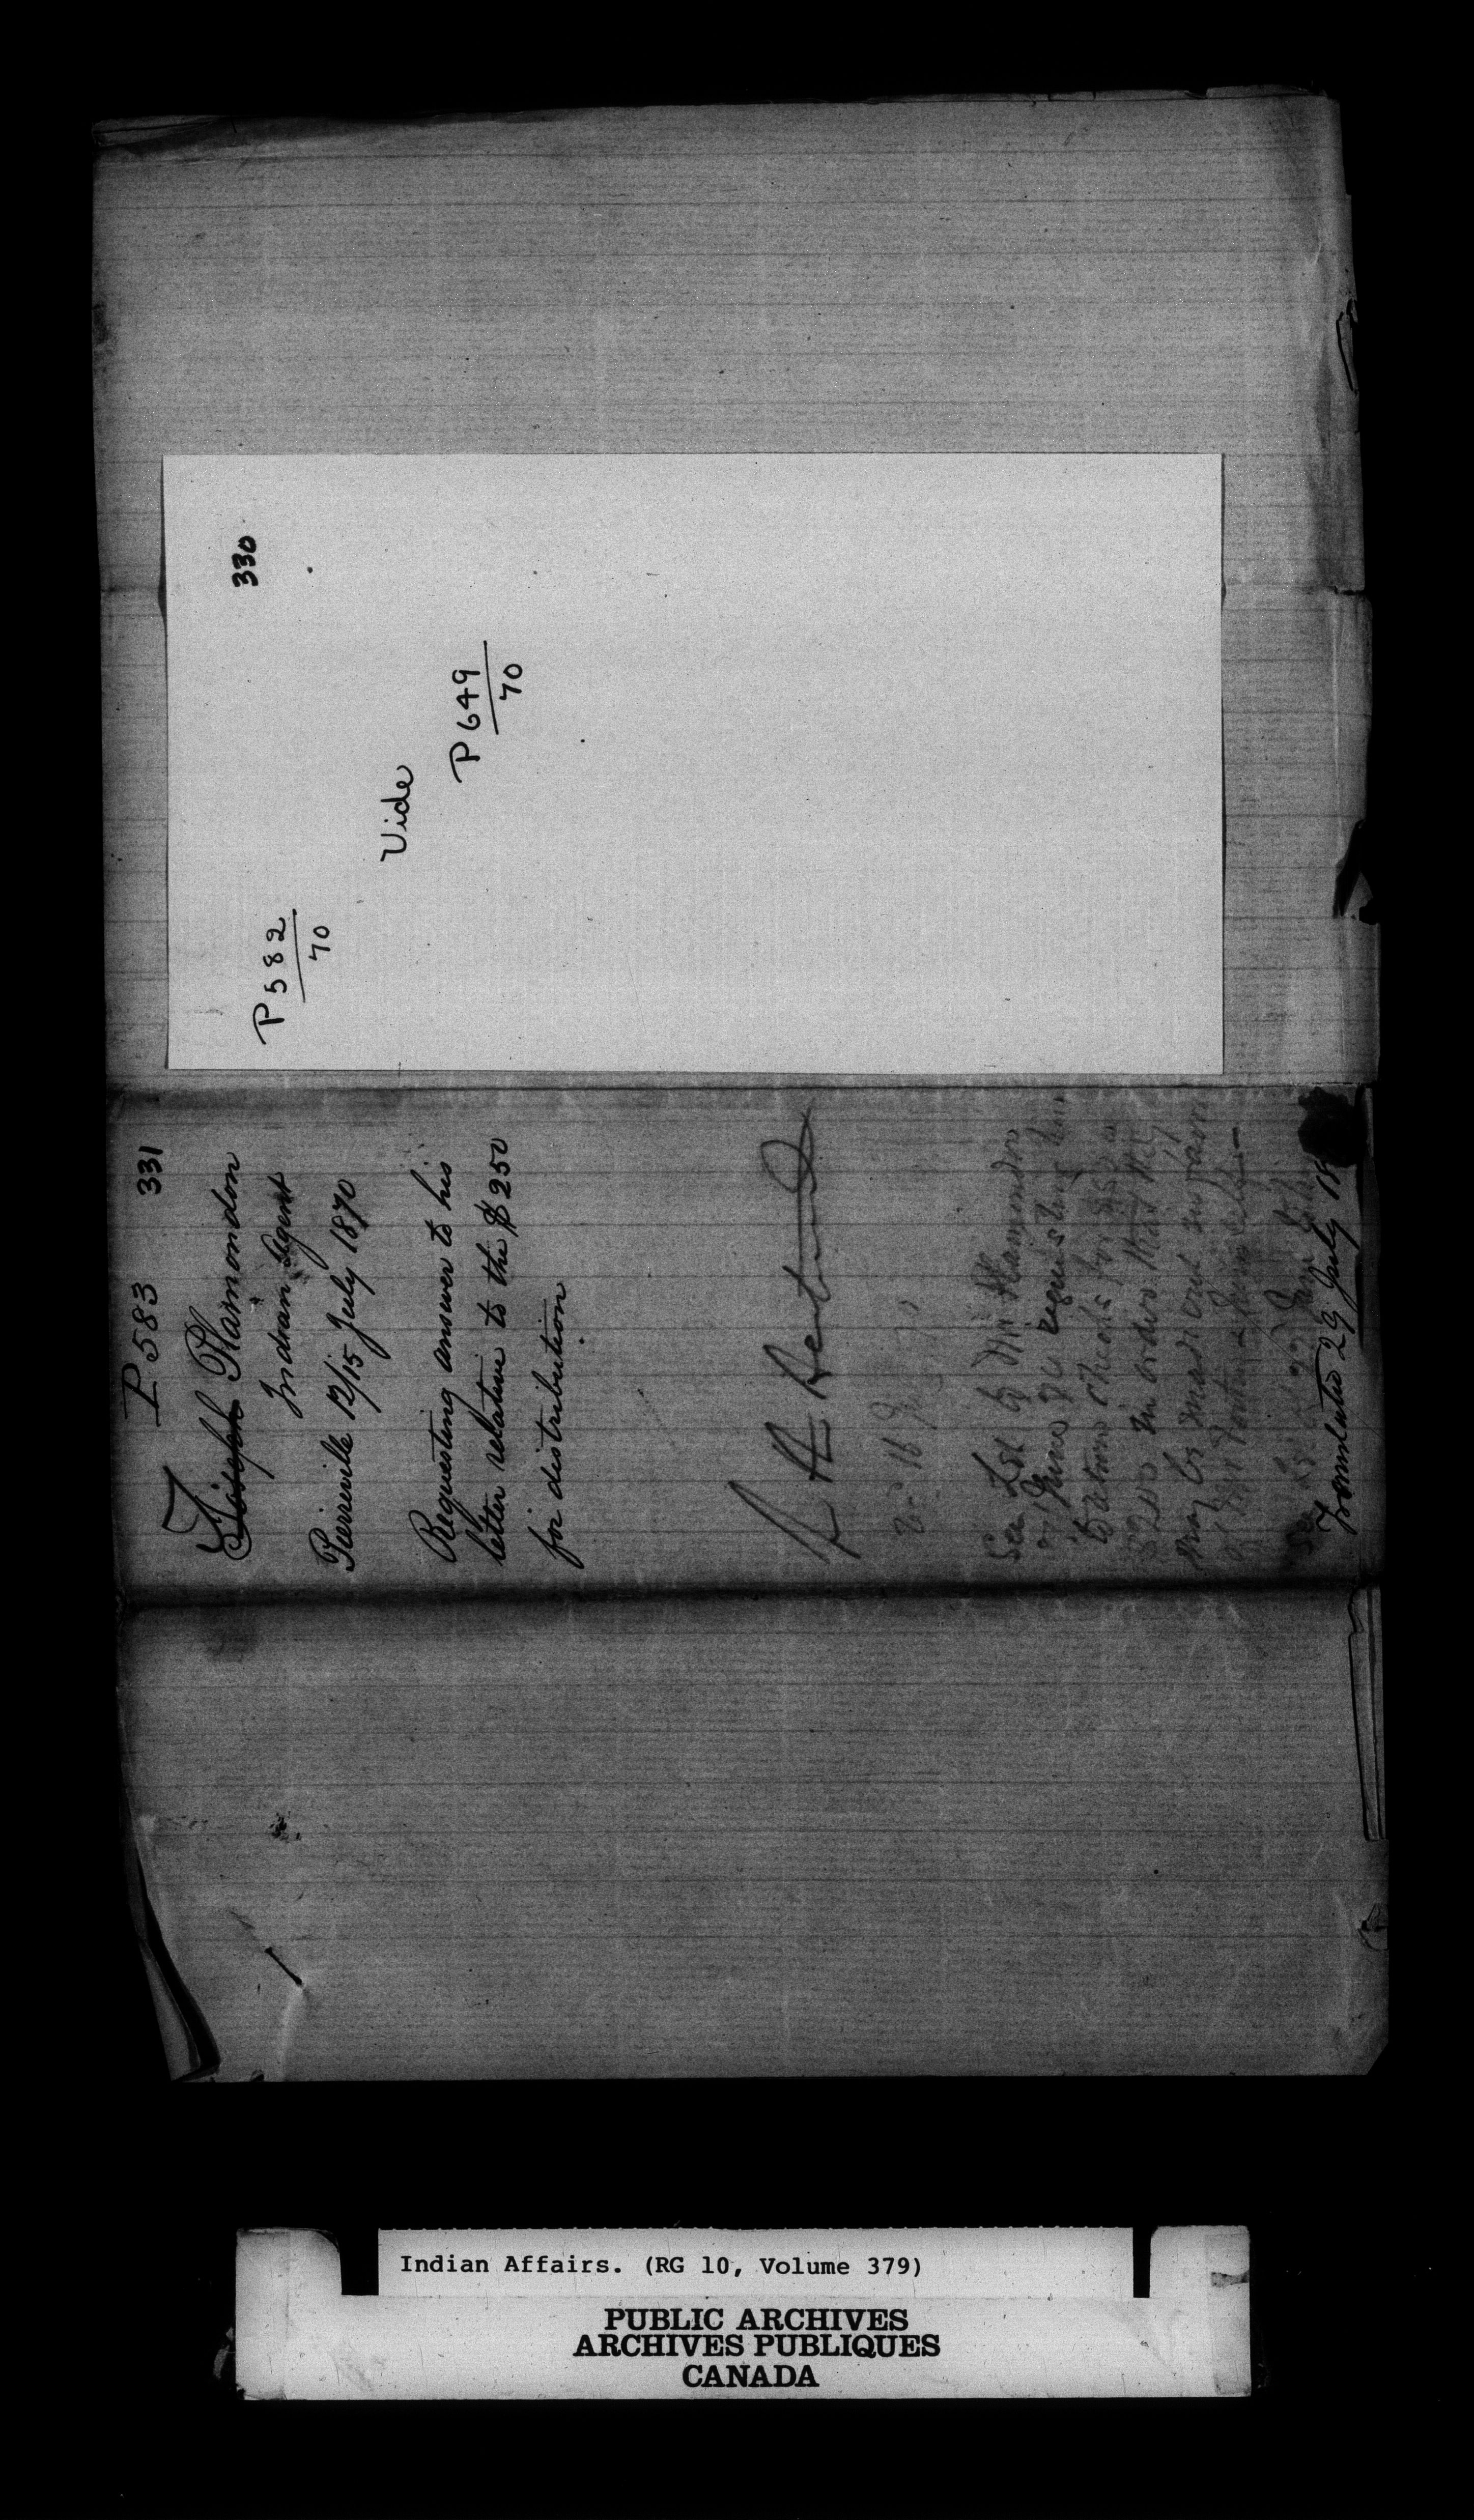 330
P 582
70
Vide
P 649
70
P 583 331
Joseph Plamondon
Indian Agent
Pierreville 12/15 July 1870
Requesting answer to his
letter relative to the $250
for distribution
16
See to Mr Plamondon
June requesting him
to return check for
in order that they
may be made out in favor
of
Translated 29 July 18
Indian Affairs. (RG 10, Volume 379)
PUBLIC ARCHIVES
ARCHIVES PUBLIQUES
CANADA